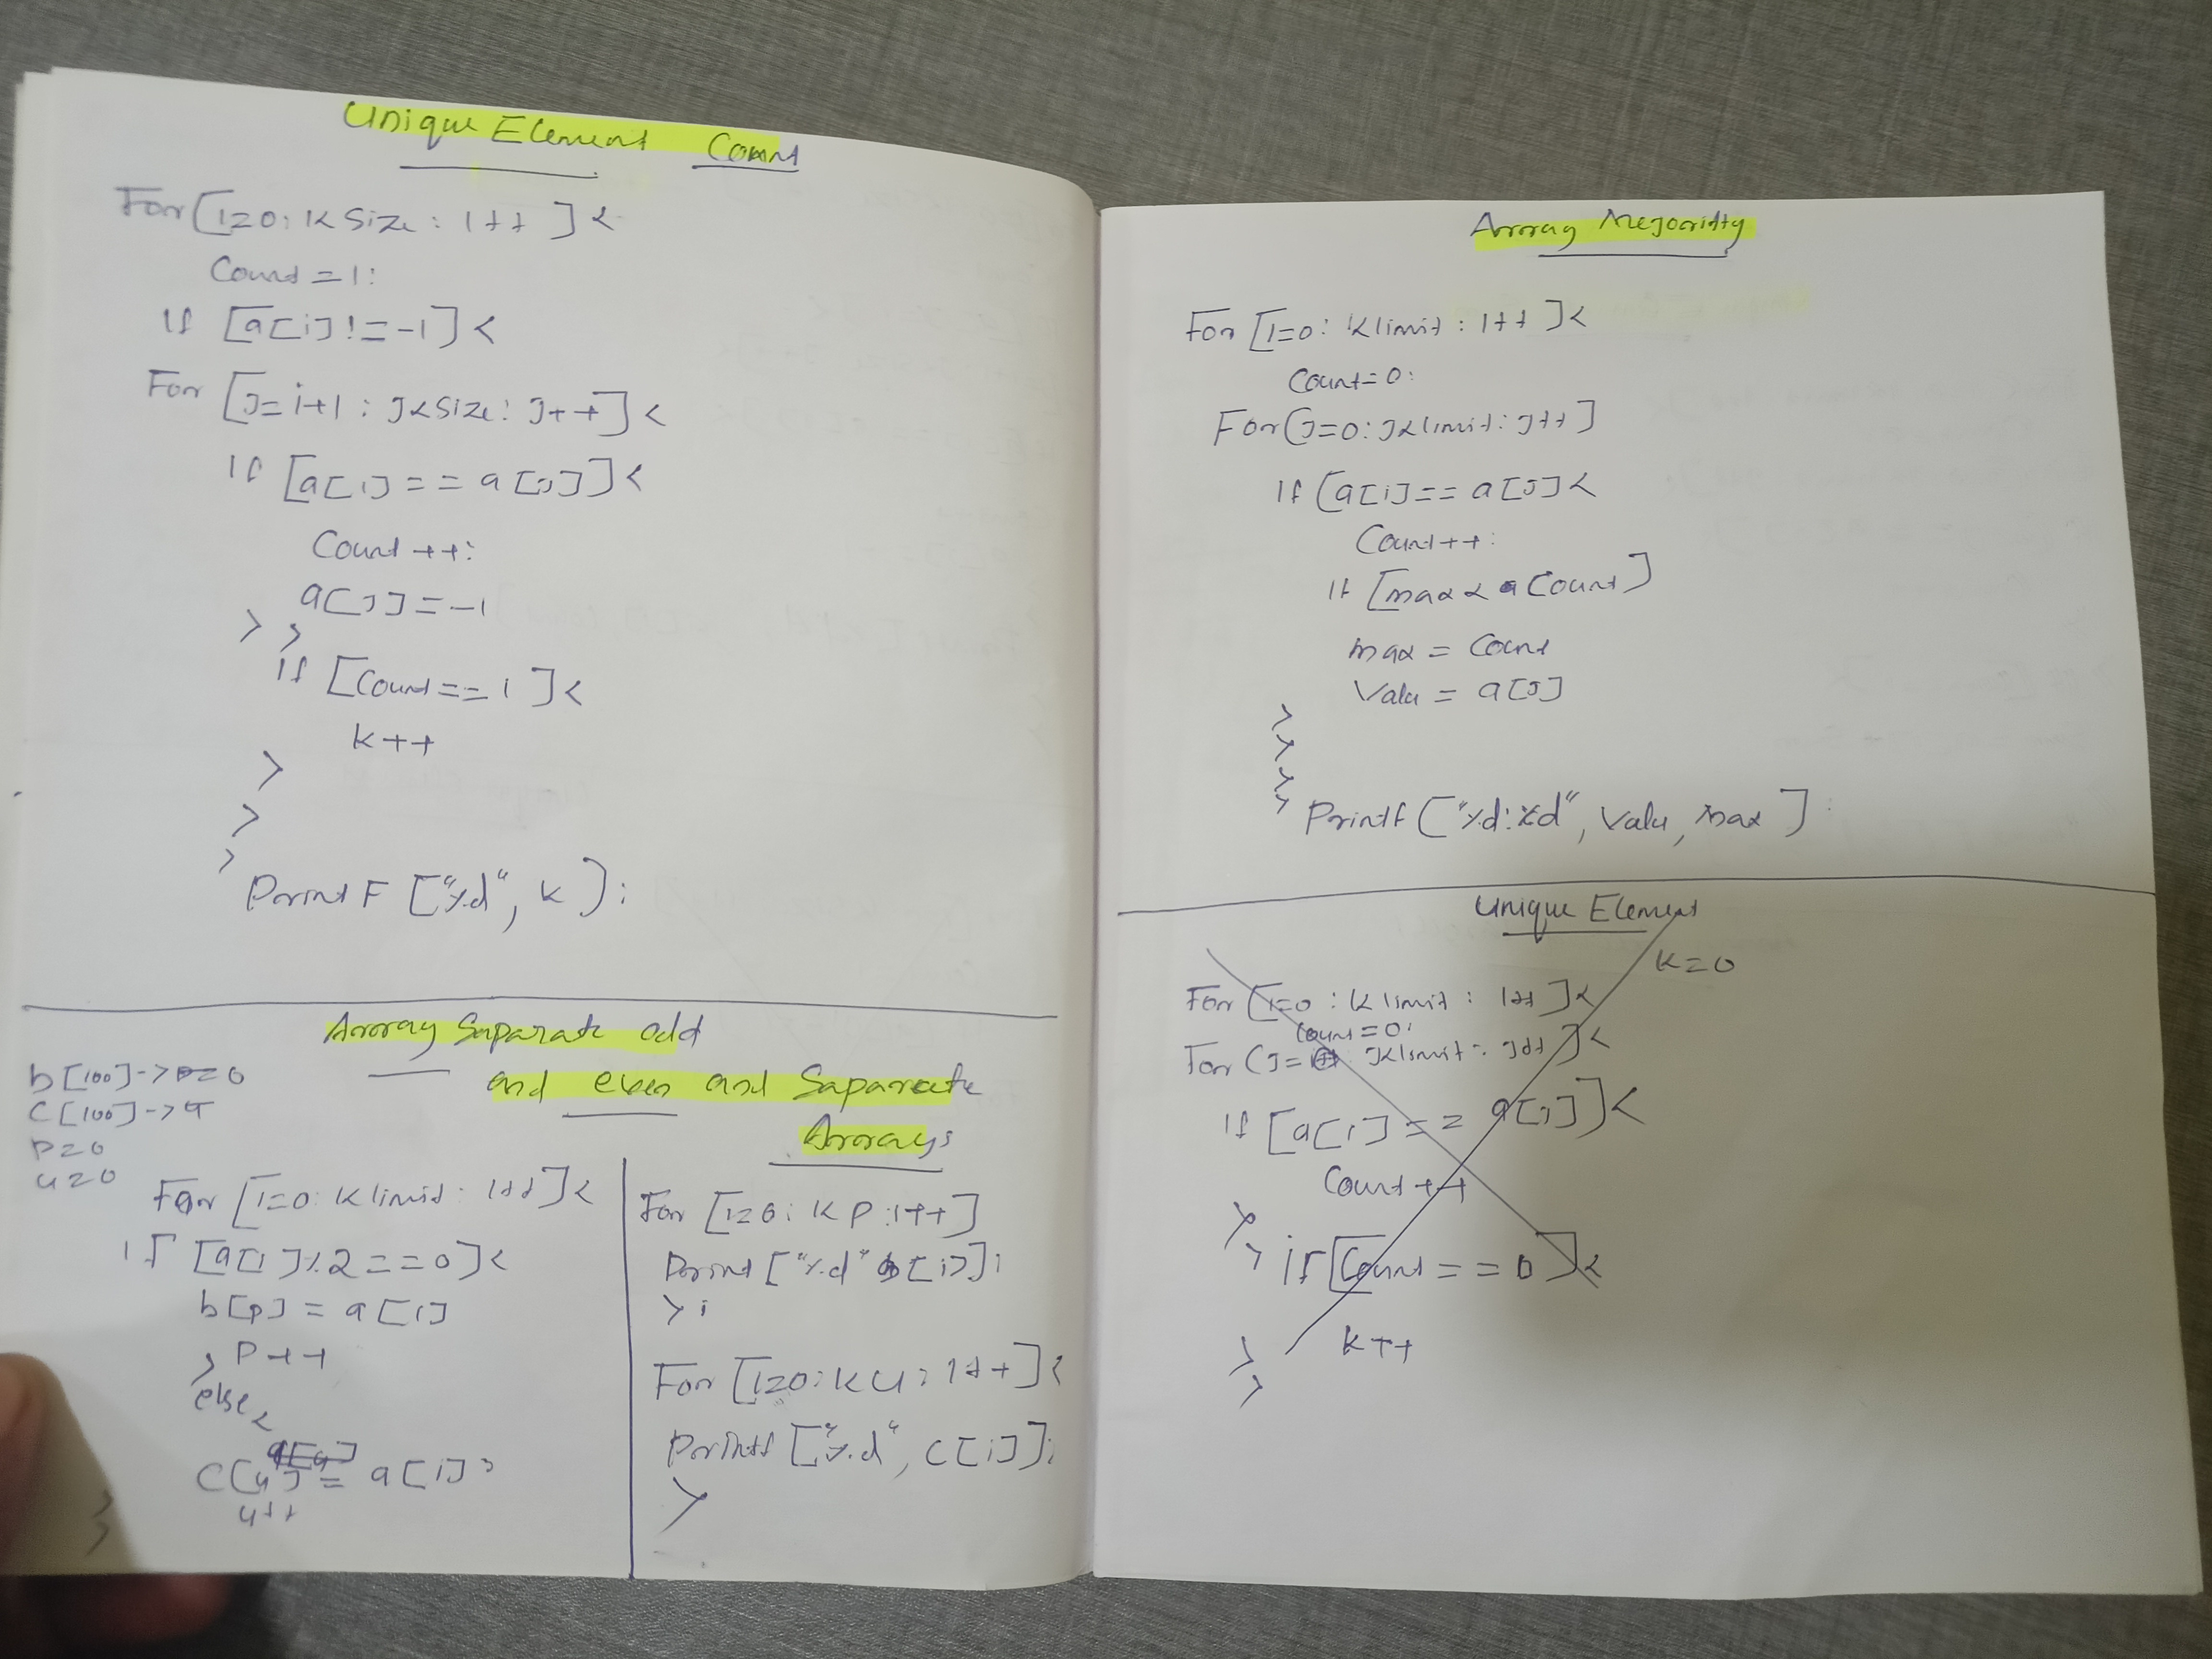 Unique Element Count
For [i=0: i<size: i++ ] <
Count = 1:
If [a[i] != -1] <
For [J= i+1 : J<size: J++] <
If [a[i] == a[j]] <
Count ++:
a[J] = -1
> >
if [Count == 1 ] <
k++
>
>
>
PrintF ["%d", k ):
Array Saparate odd
and even and Saparate
Arrays
b [100] -> P=0
C [100] -> 4
P=0
u=0
For [i=0: i<limit: i++] <
if [a[i]%2 == 0] <
b[p] = a[i]
> P++
else <
C[u] = a[i]
u++
>
>
For [i=0: i<P: i++]
Print ["%d" b[i]];
> ;
For [i=0: i<u: i++] <
Printf ["%d", C[i]];
>
Array Mejoridty
For [I=0: i<limit : i++ ] <
Count=0:
For (J=0: J<limit: J++]
If (a[i] == a[J] <
Count++:
If [max < Count]
max = Count
Valu = a[J]
>
>
>
>
Printf ["%d:%d", Valu, max ] :
Unique Element
k=0
For [i=0 : i<limit : i++ ] <
Count=0:
For (J= J<limit: J++ ] <
If [a[i] == a[j]] <
Count ++
>
>
if [Count == 0 ] <
k++
>
>